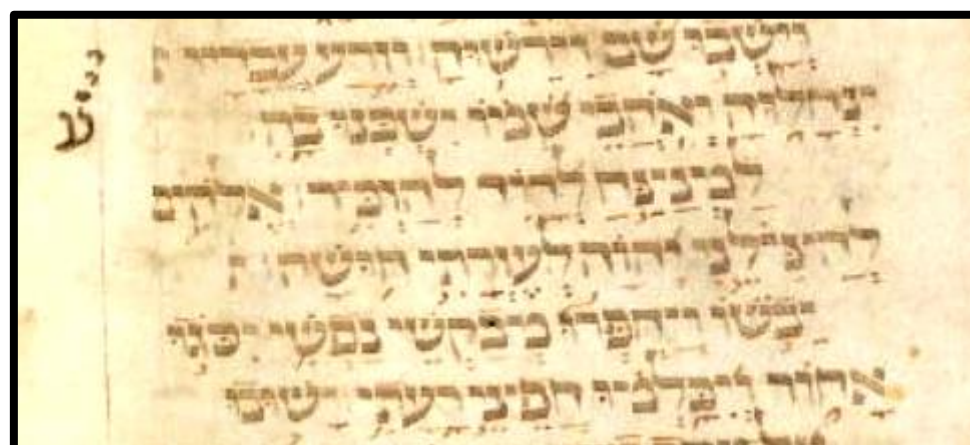 וישבו שם וירשוה וזרע עבדיו
ינחלוה ואהבי שמו ישכנו בה
ע
למנצח לדוד להזכיר אלהים
להצילני יהוה לעזרתי חושה
יבשו ויחפרו מבקשי נפשי יסגו
אחור ויכלמו חפצי רעתי